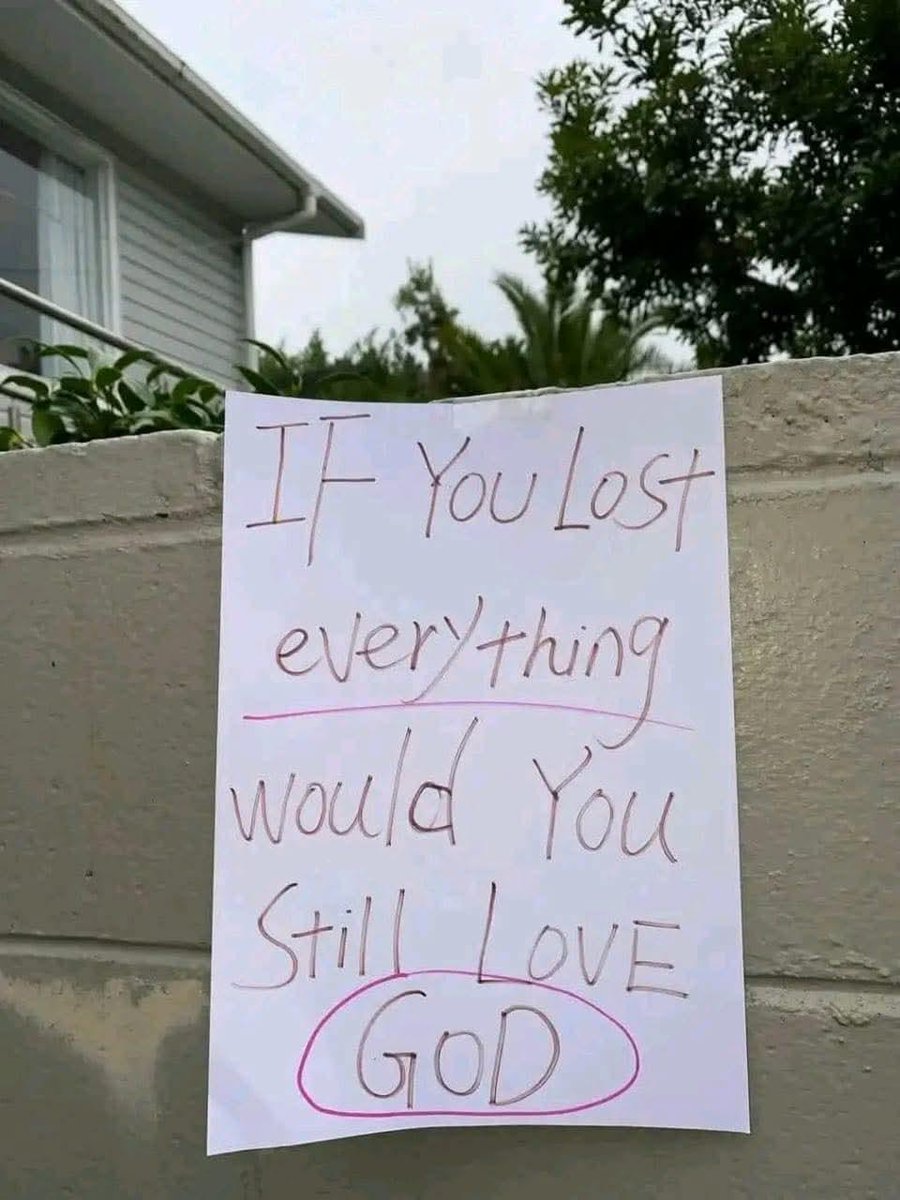 IF You Lost
everything
would You
Still LOVE
GOD